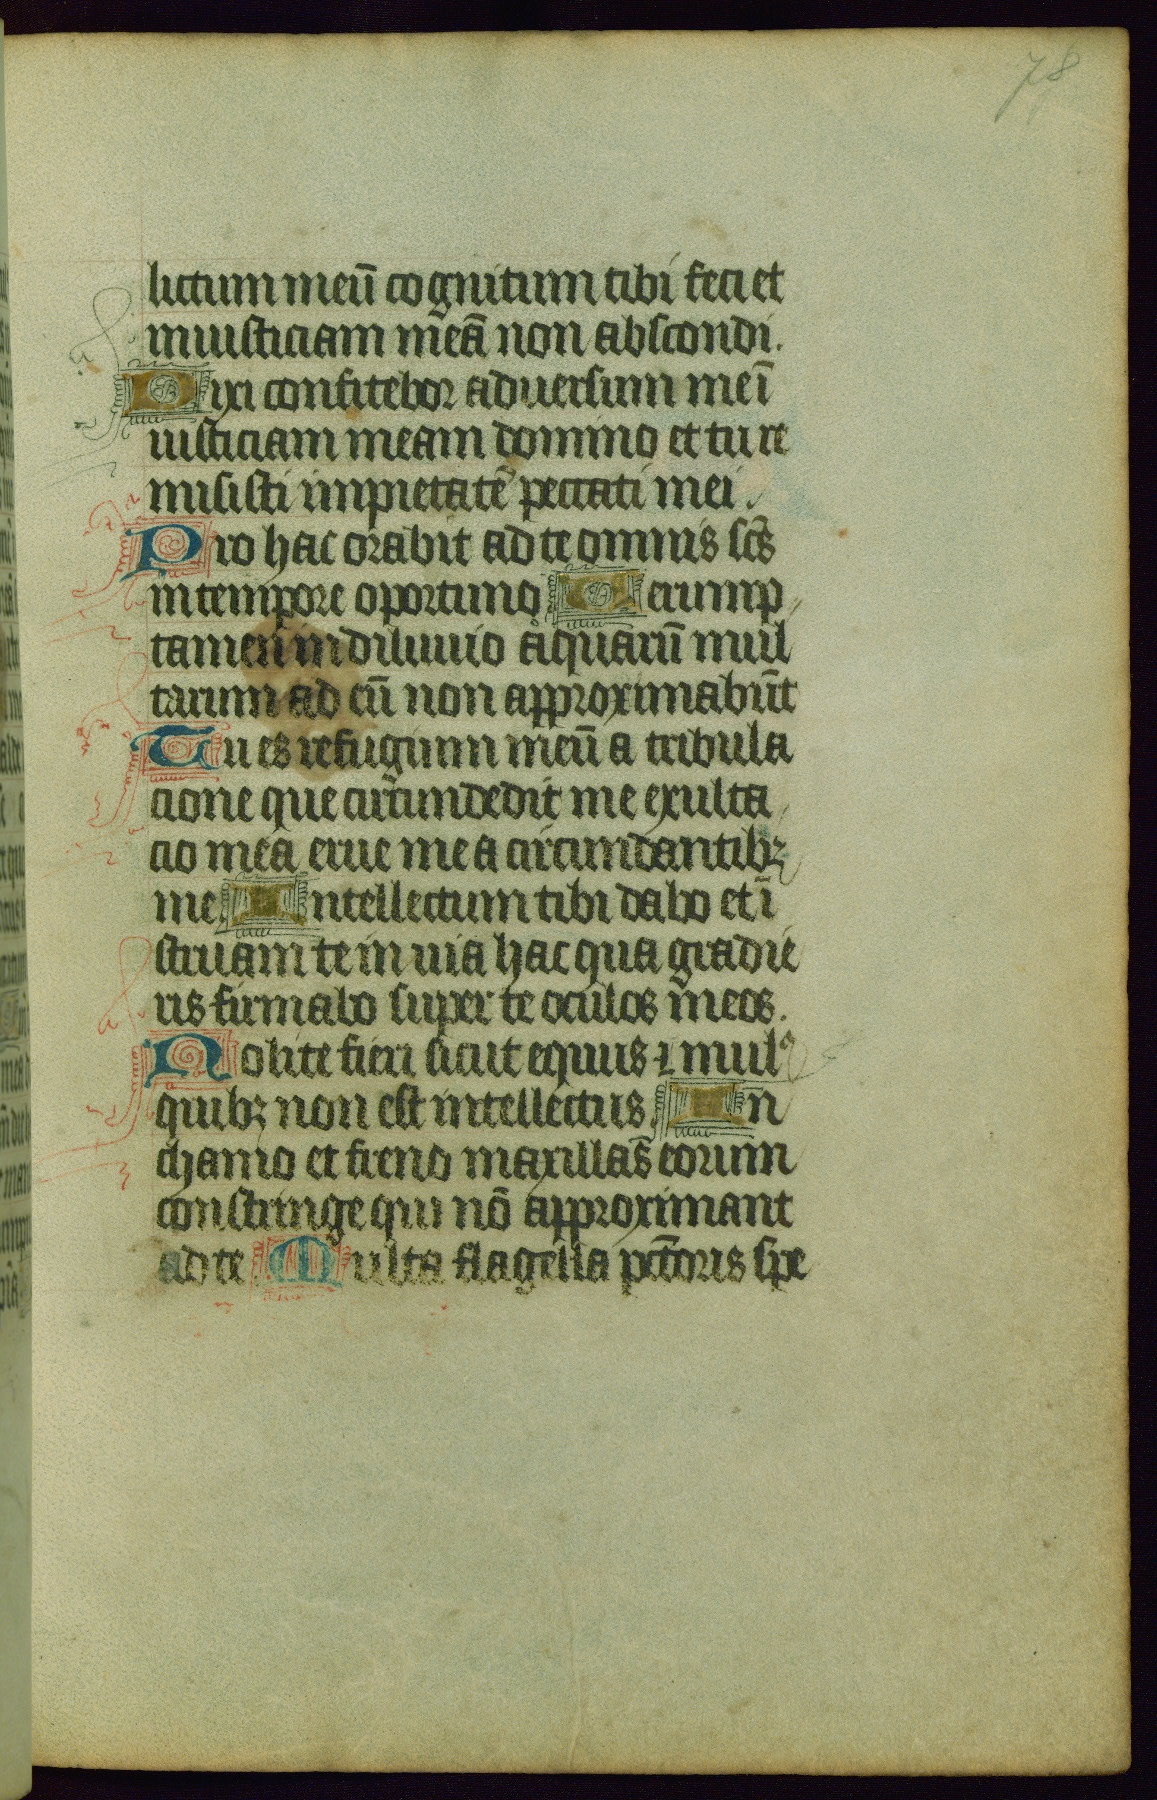 78
lictum meū cognitum tibi feci et
iniusticiam meā non abscondi.
Dixi confitebor aduersum me ī
iusticiam meam domino et tu re
misisti impietatē peccati mei.
Pro hac orabit ad te omnis scs̄
in tempore oportuno Uerump
tamen in diluuio aquarū mul
tarum ad eū non approximabūt
Tu es refugium meū a tribula
cione que circundedit me exulta
cio mea erue me a circundantibꝫ
me Intellectum tibi dabo et ī
struam te in uia hac qua gradie
ris firmabo super te oculos meos.
Nolite fieri sicut equus ⁊ mulꝰ
quibꝫ non est intellectus In
chamo et freno maxillas eorum
constringe qui nō approximant
ad te Multa flagella pctōris spe